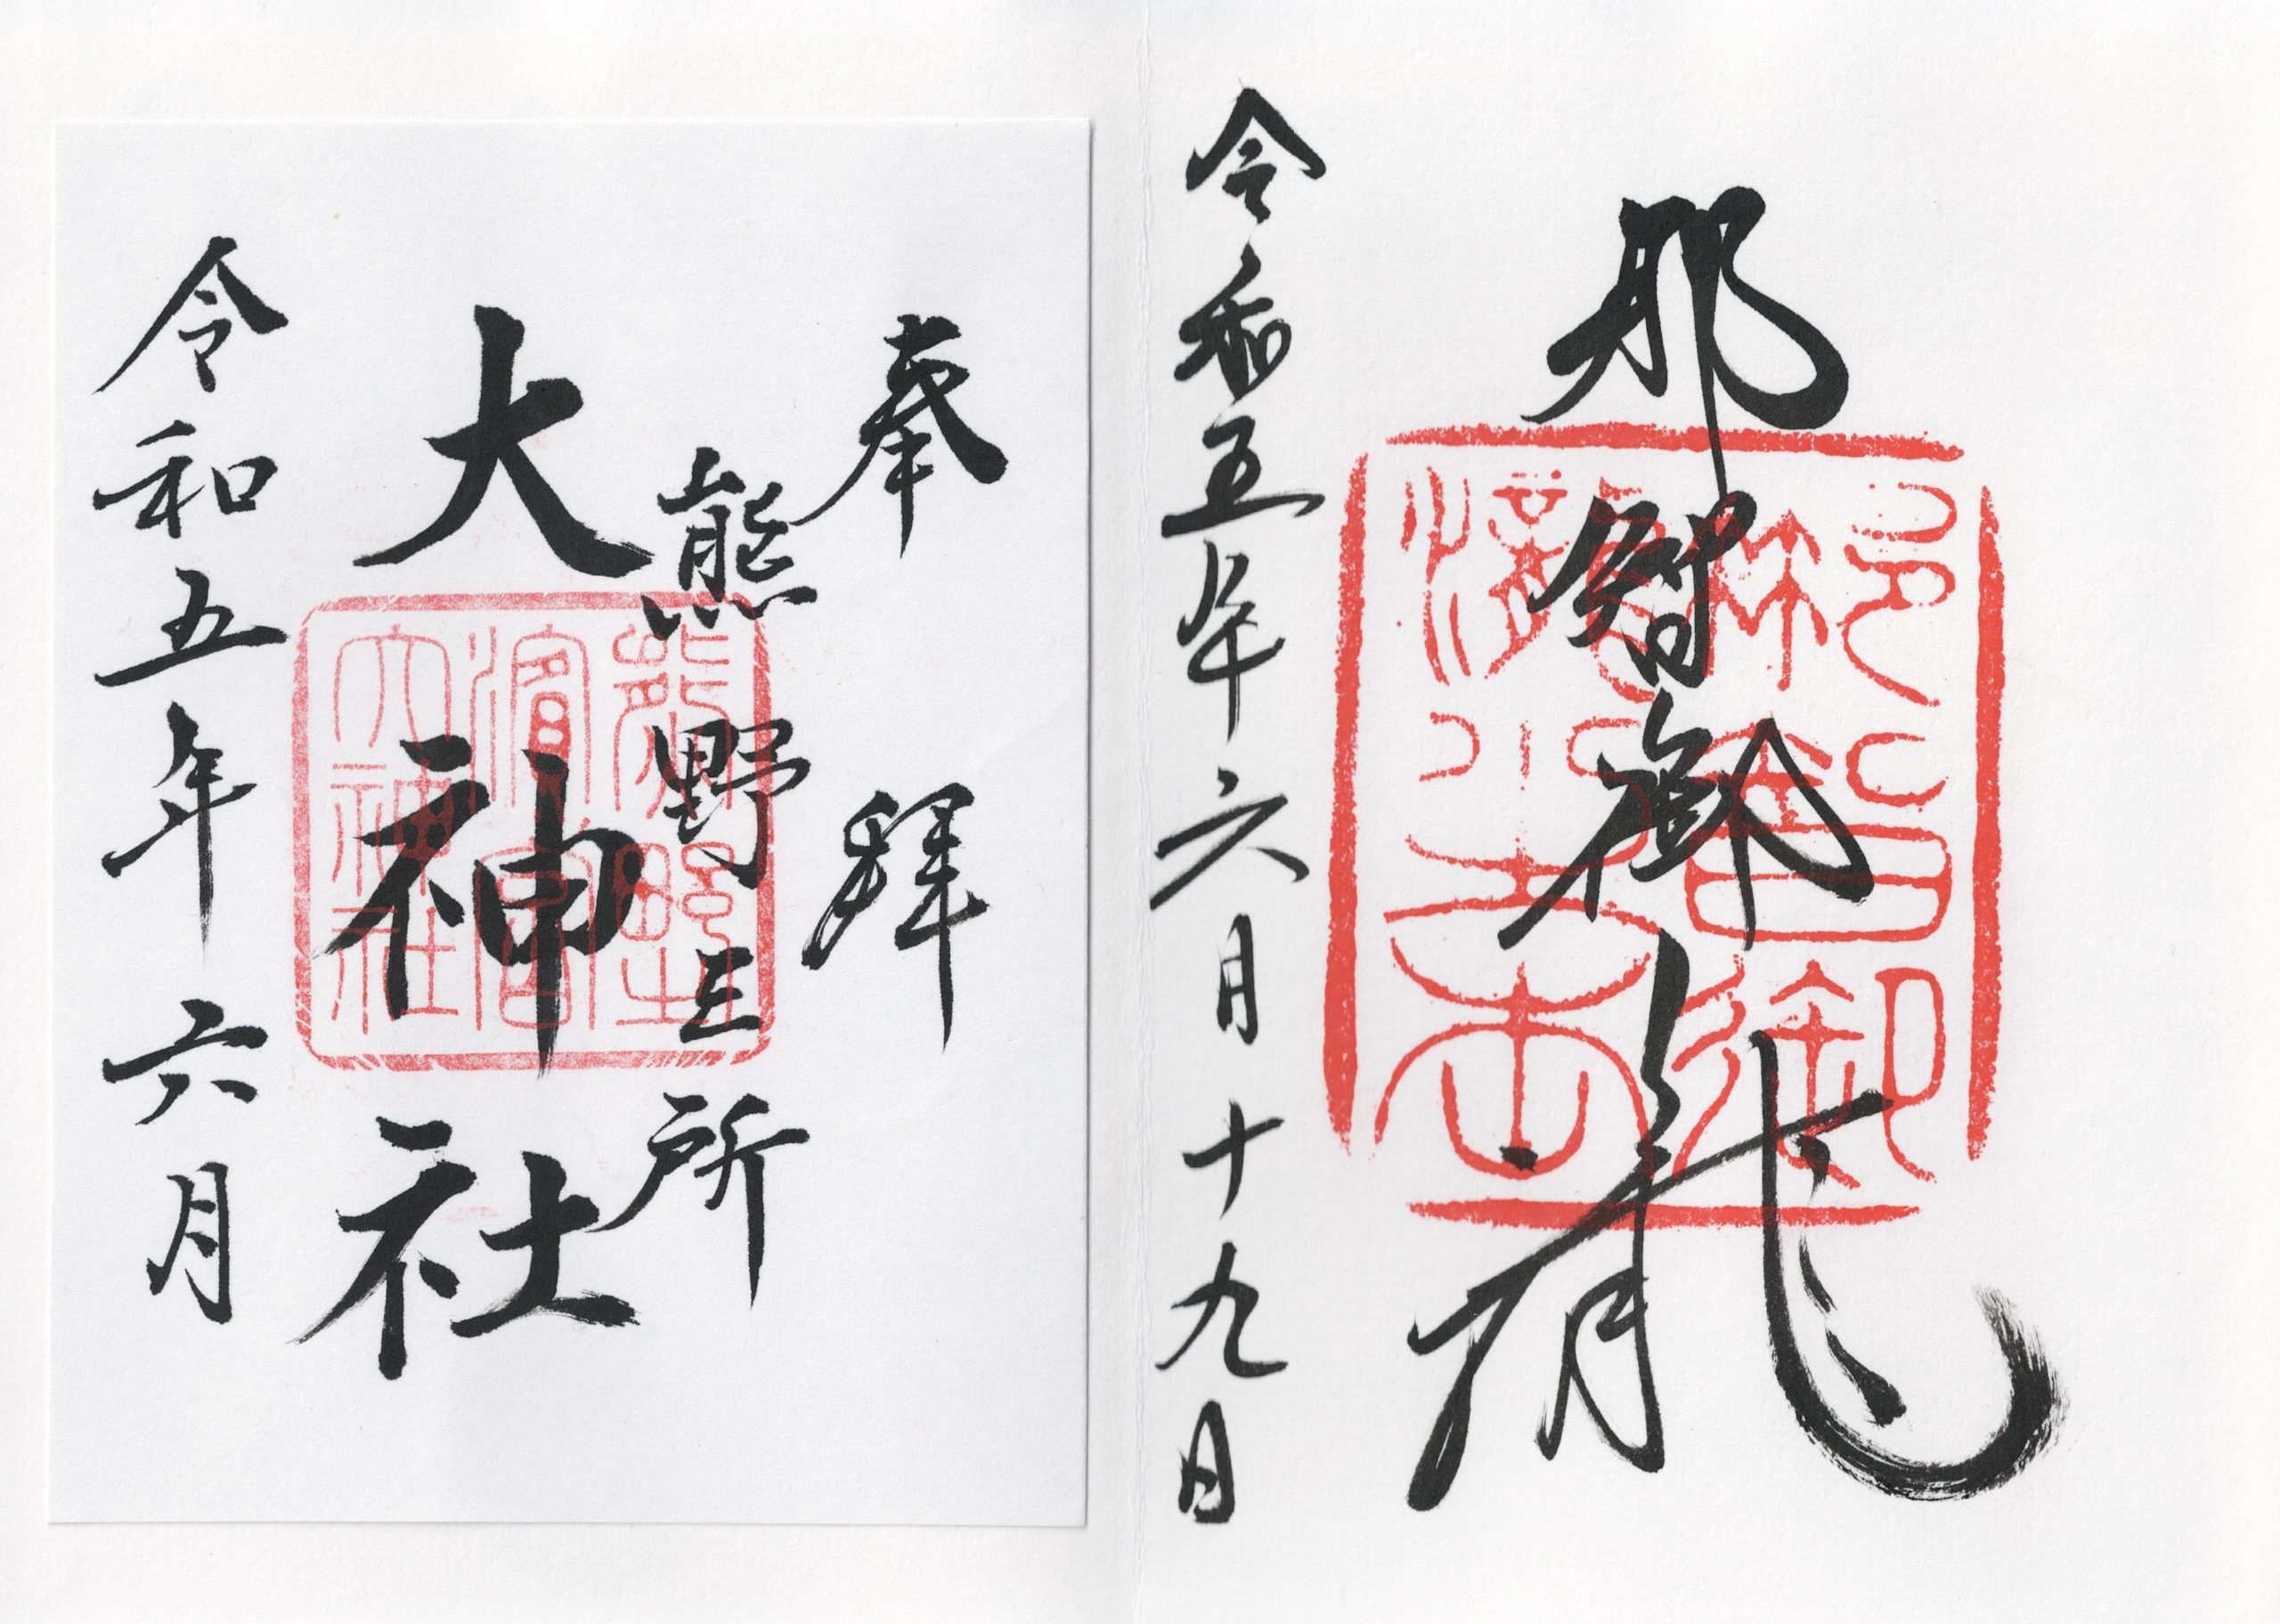 那智御瀧
令和五年六月十九日
奉拝
熊野三所
大神社
令和五年六月
熊野
濱宮
大神社